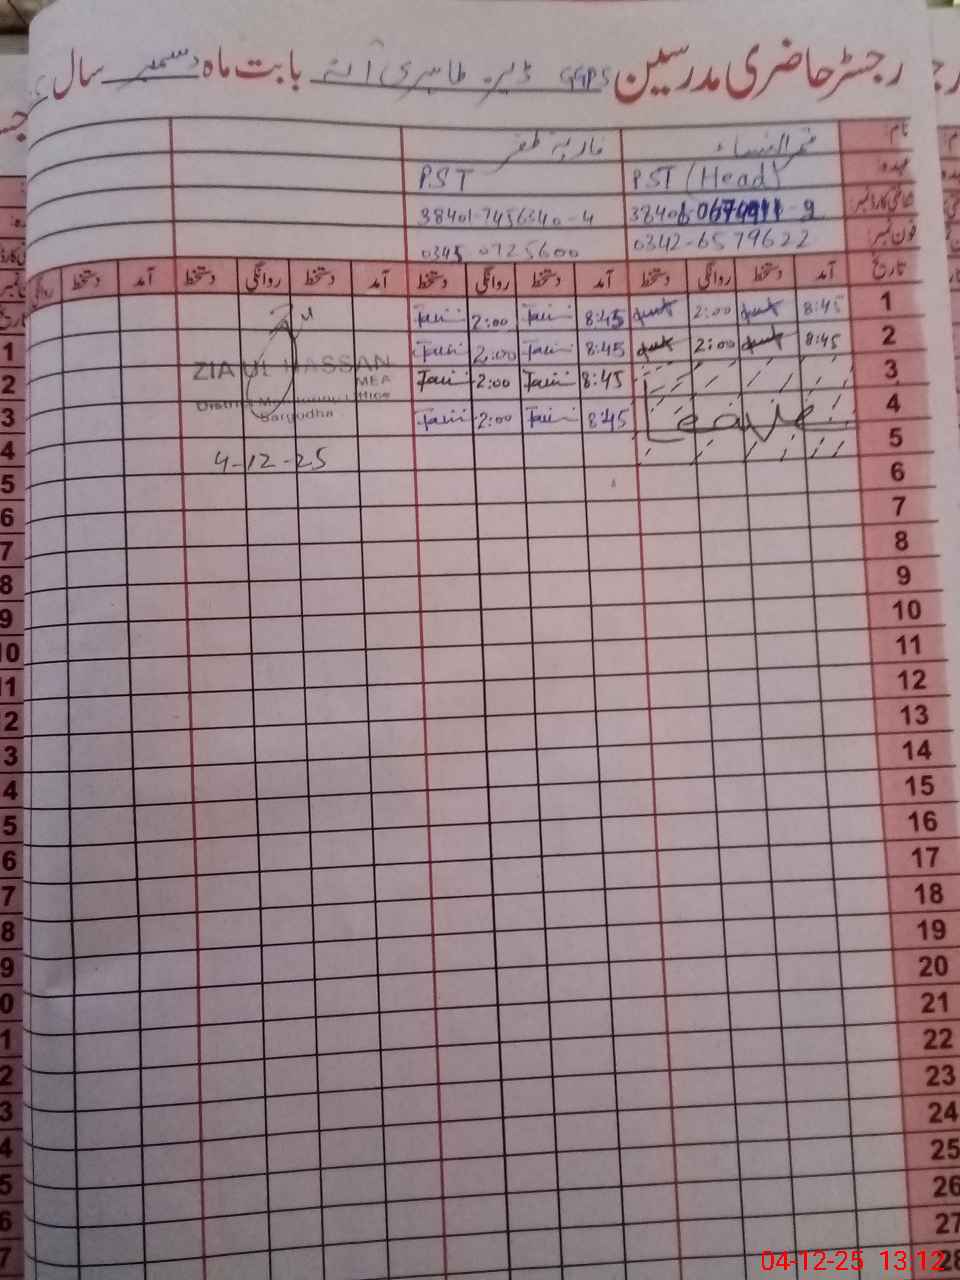 رجسٹر حاضری مدرسین GGPS ڈیرہ طاہری بابت ماہ دسمبر سال
نام: قمر النساء
عہدہ: PST (Head) PST
شناختی کارڈ نمبر 38401-7456340-4
فون نمبر: 0342-6579622 0345 0725600
تاریخ آمد دستخط روانگی دستخط آمد دستخط روانگی دستخط آمد دستخط روانگی دستخط آمد دستخط روانگی
1 8:45 2:00 8:45 2:00
2 8:45 2:00 8:45 2:00
3 8:45 2:00
4 Leave 8:45 2:00
5
ZIA UL HASSAN
MEA
District Monitoring Office
Sargodha
4-12-25
6
7
8
9
10
11
12
13
14
15
16
17
18
19
20
21
22
23
24
25
26
27
28
04-12-25 13:12